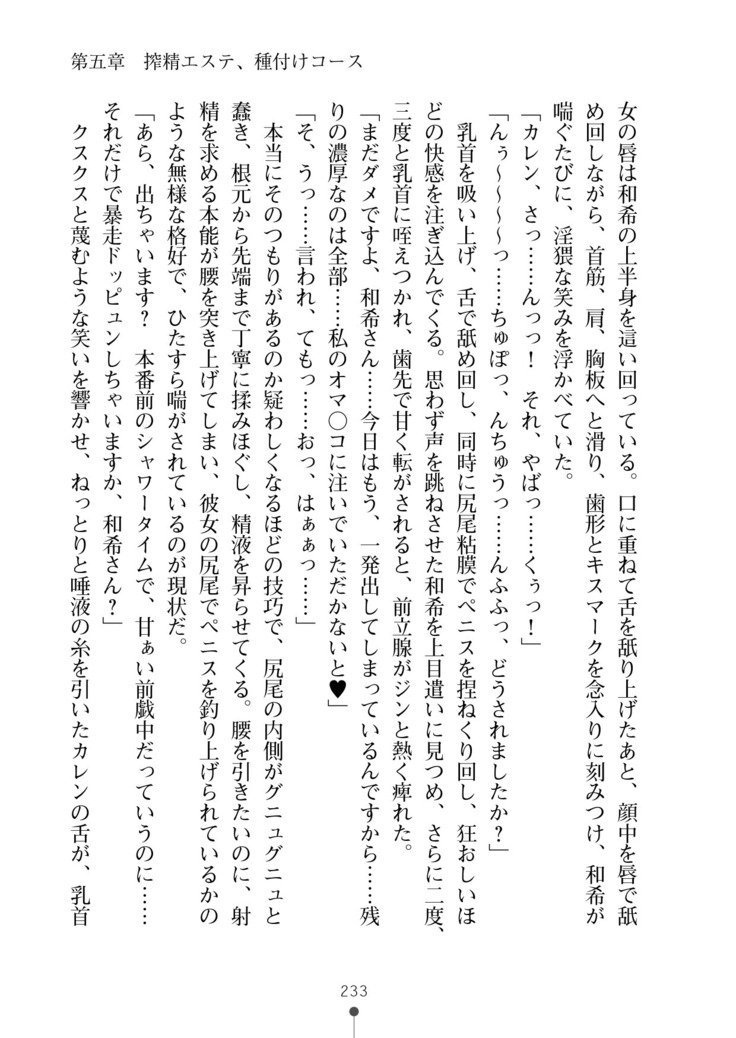 第五章　搾精エステ、種付けコース
女の唇は和希の上半身を這い回っている。口に重ねて舌を舐り上げたあと、顔中を唇で舐
め回しながら、首筋、肩、胸板へと滑り、歯形とキスマークを念入りに刻みつけ、和希が
喘ぐたびに、淫猥な笑みを浮かべていた。
「カレン、さっ……んっっ！　それ、やばっ……くぅっ！」
「んぅ～～～～っ……ちゅぽっ、んちゅうっ……んふふっ、どうされましたか？」
　乳首を吸い上げ、舌で舐め回し、同時に尻尾粘膜でペニスを捏ねくり回し、狂おしいほ
どの快感を注ぎ込んでくる。思わず声を跳ねさせた和希を上目遣いに見つめ、さらに二度、
三度と乳首に咥えつかれ、歯先で甘く転がされると、前立腺がジンと熱く痺れた。
「まだダメですよ、和希さん……今日はもう、一発出してしまっているんですから……残
りの濃厚なのは全部……私のオマ〇コに注いでいただかないと♥」
「そ、うっ……言われ、てもっ……おっ、はぁぁっ……」
　本当にそのつもりがあるのか疑わしくなるほどの技巧で、尻尾の内側がグニュグニュと
蠢き、根元から先端まで丁寧に揉みほぐし、精液を昇らせてくる。腰を引きたいのに、射
精を求める本能が腰を突き上げてしまい、彼女の尻尾でペニスを釣り上げられているかの
ような無様な格好で、ひたすら喘がされているのが現状だ。
「あら、出ちゃいます？　本番前のシャワータイムで、甘ぁい前戯中だっていうのに……
それだけで暴走ドッピュンしちゃいますか、和希さん？」
　クスクスと蔑むような笑いを響かせ、ねっとりと唾液の糸を引いたカレンの舌が、乳首
233